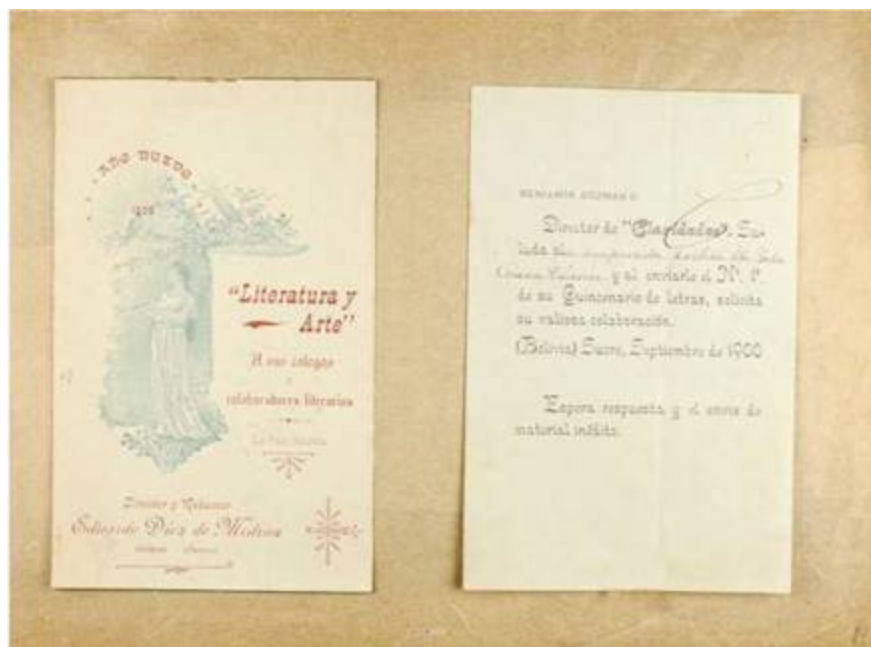 AÑO NUEVO
"Literatura y
Arte"
A sus colegas
y
colaboradores literarios
La Paz-Bolivia
Director y Redactor
Eduardo Diez de Medina
BENJAMIN GUZMAN
Director de "Claridades", Sa-
luda al
y al enviarle el Nº. 1º.
de su Quincenario de letras, solicita
su valiosa colaboración.
(Bolivia) Sucre, Septiembre de 1900
Espera respuesta y el envío de
material inédito.